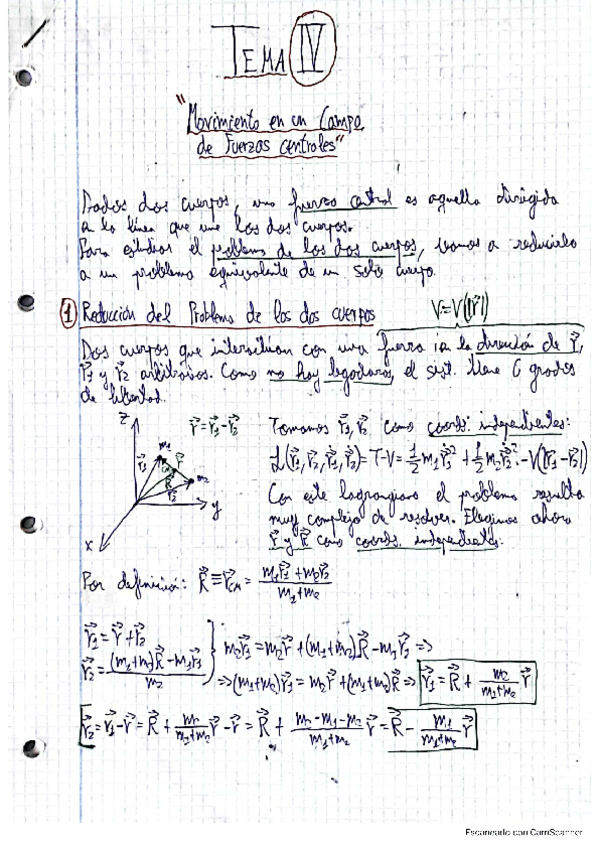 TEMA IV
"Movimiento en un Campo
de Fuerzas Centrales"
Dados dos cuerpos, una fuerza central es aquella dirigida
a la línea que une los dos cuerpos.
Para estudiar el problema de los dos cuerpos, vamos a reducirlo
a un problema equivalente de un solo cuerpo.
1 Reducción del Problema de los dos cuerpos V=V(|r⃗|)
Dos cuerpos que interactúan con una fuerza en la dirección de r⃗,
r⃗₁ y r⃗₂ arbitrarios. Como no hay ligaduras, el sist. tiene 6 grados
de libertad.
z r⃗=r⃗₁-r⃗₂ Tomamos r⃗₁, r⃗₂ como coords. independientes:
m₁ r⃗₁ r⃗ R⃗ r⃗₂ m₂ y x
L(r⃗₁, r⃗₂, ṙ⃗₁, ṙ⃗₂) = T-V = 1/2 m₁ṙ⃗₁² + 1/2 m₂ṙ⃗₂² - V(|r⃗₁-r⃗₂|)
Con este lagrangiano el problema resulta
muy complejo de resolver. Elegimos ahora
r⃗ y R⃗ como coords. independientes.
Por definición: R⃗ ≡ r⃗CM = (m₁r⃗₁ + m₂r⃗₂)/(m₁+m₂)
r⃗₁ = r⃗ + r⃗₂
r⃗₂ = ((m₁+m₂)R⃗ - m₁r⃗₁)/m₂
} m₂r⃗₁ = m₂r⃗ + (m₁+m₂)R⃗ - m₁r⃗₁ =>
=> (m₁+m₂)r⃗₁ = m₂r⃗ + (m₁+m₂)R⃗ => r⃗₁ = R⃗ + m₂/(m₁+m₂) r⃗
r⃗₂ = r⃗₁ - r⃗ = R⃗ + m₂/(m₁+m₂) r⃗ - r⃗ = R⃗ + (m₂-m₁-m₂)/(m₁+m₂) r⃗ = R⃗ - m₁/(m₁+m₂) r⃗
Escaneado con CamScanner